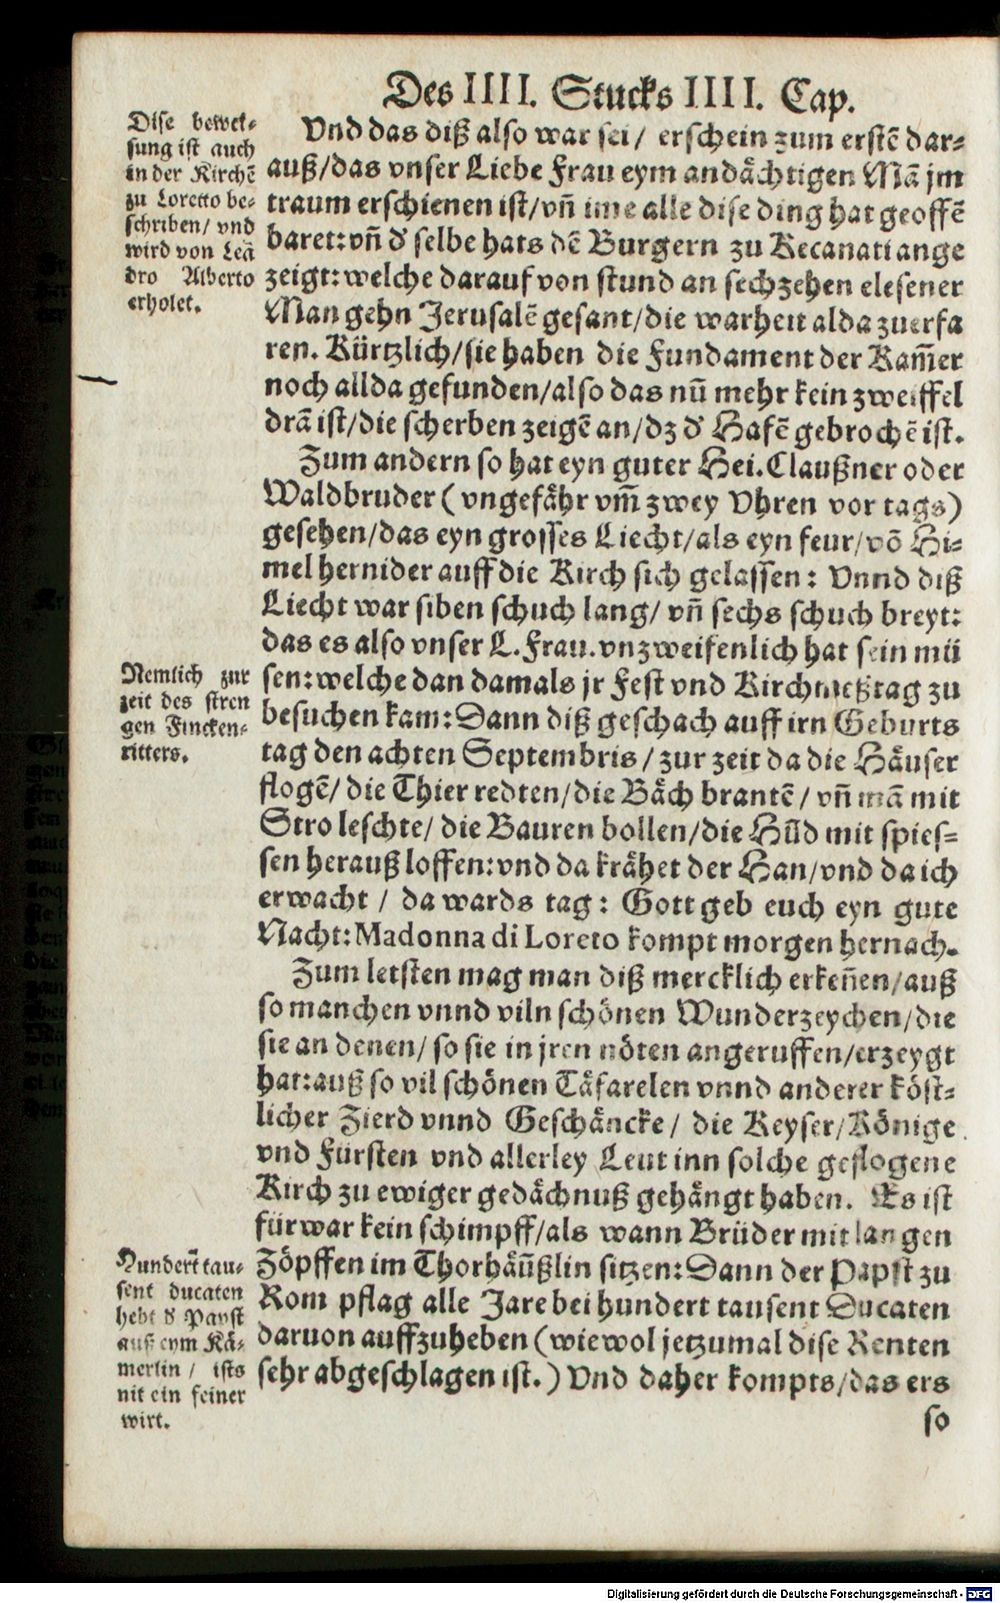 Des IIII. Stucks IIII. Cap.
Dise bewei-
sung ist auch
in der Kirchẽ
zu Loretto be-
schriben/ vnd
wird von Leã
dro Alberto
erholet.
Vnd das diß also war sei/ erschein zum erstẽ dar-
auß/das vnser Liebe Frau eym andächtigen Mã jm
traum erschienen ist/vñ ime alle dise ding hat geoffẽ
baret: vñ d' selbe hats dẽ Burgern zu Recanati ange
zeigt: welche darauf von stund an sechzehen elesener
Man gehn Jerusalẽ gesant/die warheit alda zuerfa
ren. Kürtzlich/sie haben die Fundament der Kam̃er
noch allda gefunden/also das nũ mehr kein zweiffel
drã ist/die scherben zeigẽ an/dz d' Hafẽ gebrochẽ ist.
Zum andern so hat eyn guter Hei. Claußner oder
Waldbruder (vngefähr vm̃ zwey Vhren vor tags)
gesehen/das eyn grosses Liecht/als eyn feur/võ Hi-
mel hernider auff die Kirch sich gelassen: Vnnd diß
Liecht war siben schuch lang/ vñ sechs schuch breyt:
das es also vnser L. Frau. vnzweifenlich hat sein mü
Nemlich zur
zeit des stren
gen Fincken-
ritters.
sen: welche dan damals jr Fest vnd Kirchmeßtag zu
besuchen kam: Dann diß geschach auff irn Geburts
tag den achten Septembris/ zur zeit da die Häuser
flogẽ/ die Thier redten/die Bäch brantẽ/ vñ mã mit
Stro leschte/ die Bauren bollen/die Hũd mit spies-
sen herauß loffen: vnd da krähet der Han/vnd da ich
erwacht / da wards tag: Gott geb euch eyn gute
Nacht: Madonna di Loreto kompt morgen hernach.
Zum letsten mag man diß mercklich erkeñen/auß
so manchen vnnd viln schönen Wunderzeychen/die
sie an denen/ so sie in jren nöten angeruffen/erzeygt
hat: auß so vil schönen Täfarelen vnnd anderer köst-
licher Zierd vnnd Geschäncke/ die Keyser/Könige
vnd Fürsten vnd allerley Leut inn solche geflogene
Kirch zu ewiger gedächnuß gehängt haben. Es ist
für war kein schimpff/als wann Brüder mit langen
Hundert tau-
sent ducaten
hebt d' Papst
auß eym Kä-
merlin/ ists
nit ein feiner
wirt.
Zöpffen im Thorhäũßlin sitzen: Dann der Papst zu
Rom pflag alle Jare bei hundert tausent Ducaten
daruon auffzuheben (wiewol jetzumal dise Renten
sehr abgeschlagen ist.) Vnd daher kompts/das ers
so
Digitalisierung gefördert durch die Deutsche Forschungsgemeinschaft - DFG